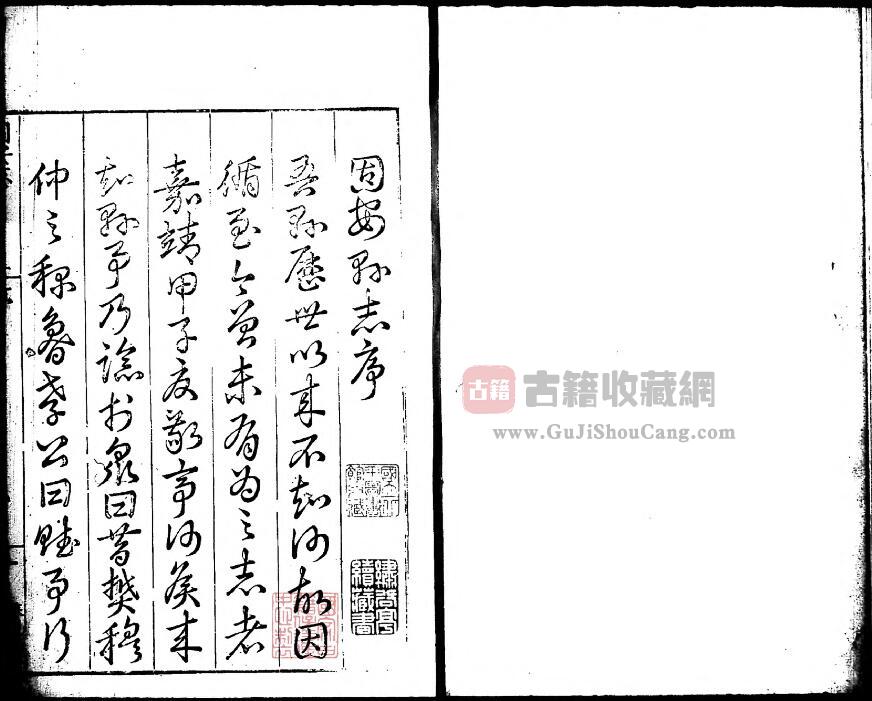 固安縣志序
吾縣歷世以來不知何故因
循至今曾未有為之志者
嘉靖甲子夏敬亭何侯來
知縣事乃諗於眾曰昔樊穆
仲之稱魯孝公曰賦事行
古籍
古籍收藏網
www.GuJiShouCang.com